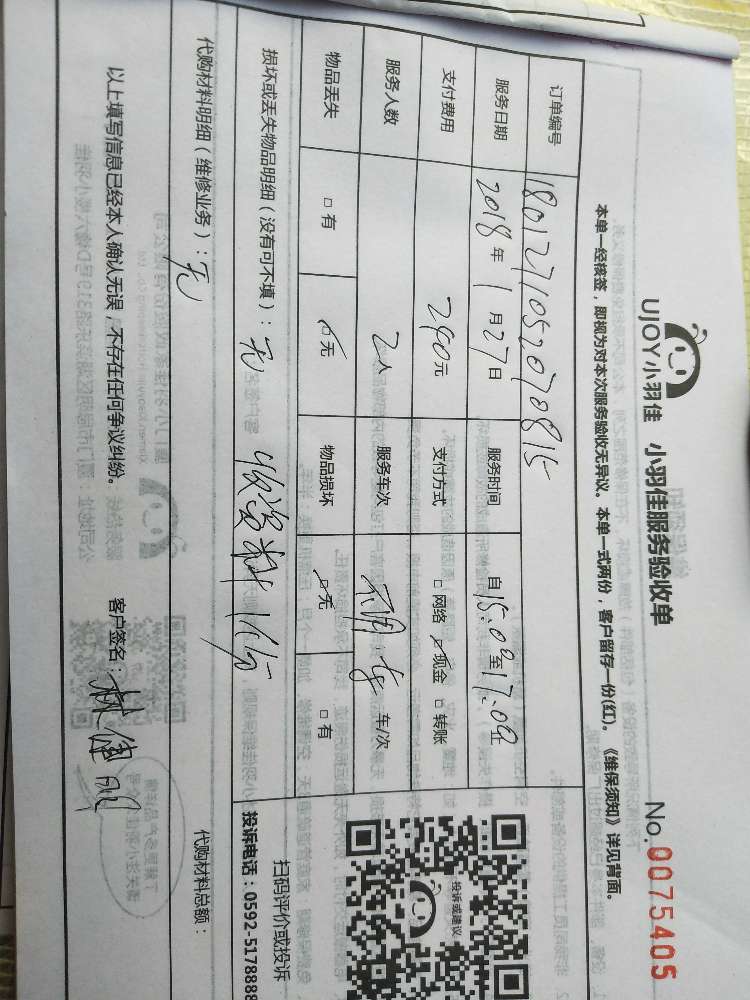 UJOY小羽佳 小羽佳服务验收单 No.0075405
本单一经核签，即视为对本次服务验收无异议。本单一式两份，客户留存一份(红)。《维保须知》详见背面。
订单编号 1801271052070815
服务日期 2018年1月27日 服务时间 自15:00至17:00
支付费用 240元 支付方式 □网络 ☑现金 □转账
服务人数 2人 服务车次 不用车 车/次
物品丢失 □有 ☑无 物品损坏 ☑无 □有
损坏或丢失物品明细（没有可不填）：无
代购材料明细（维修业务）：无
代购材料总额：
以上填写信息已经本人确认无误，不存在任何争议纠纷。 客户签名：
投诉或建议
扫码评价或投诉
投诉电话：0592-5178888